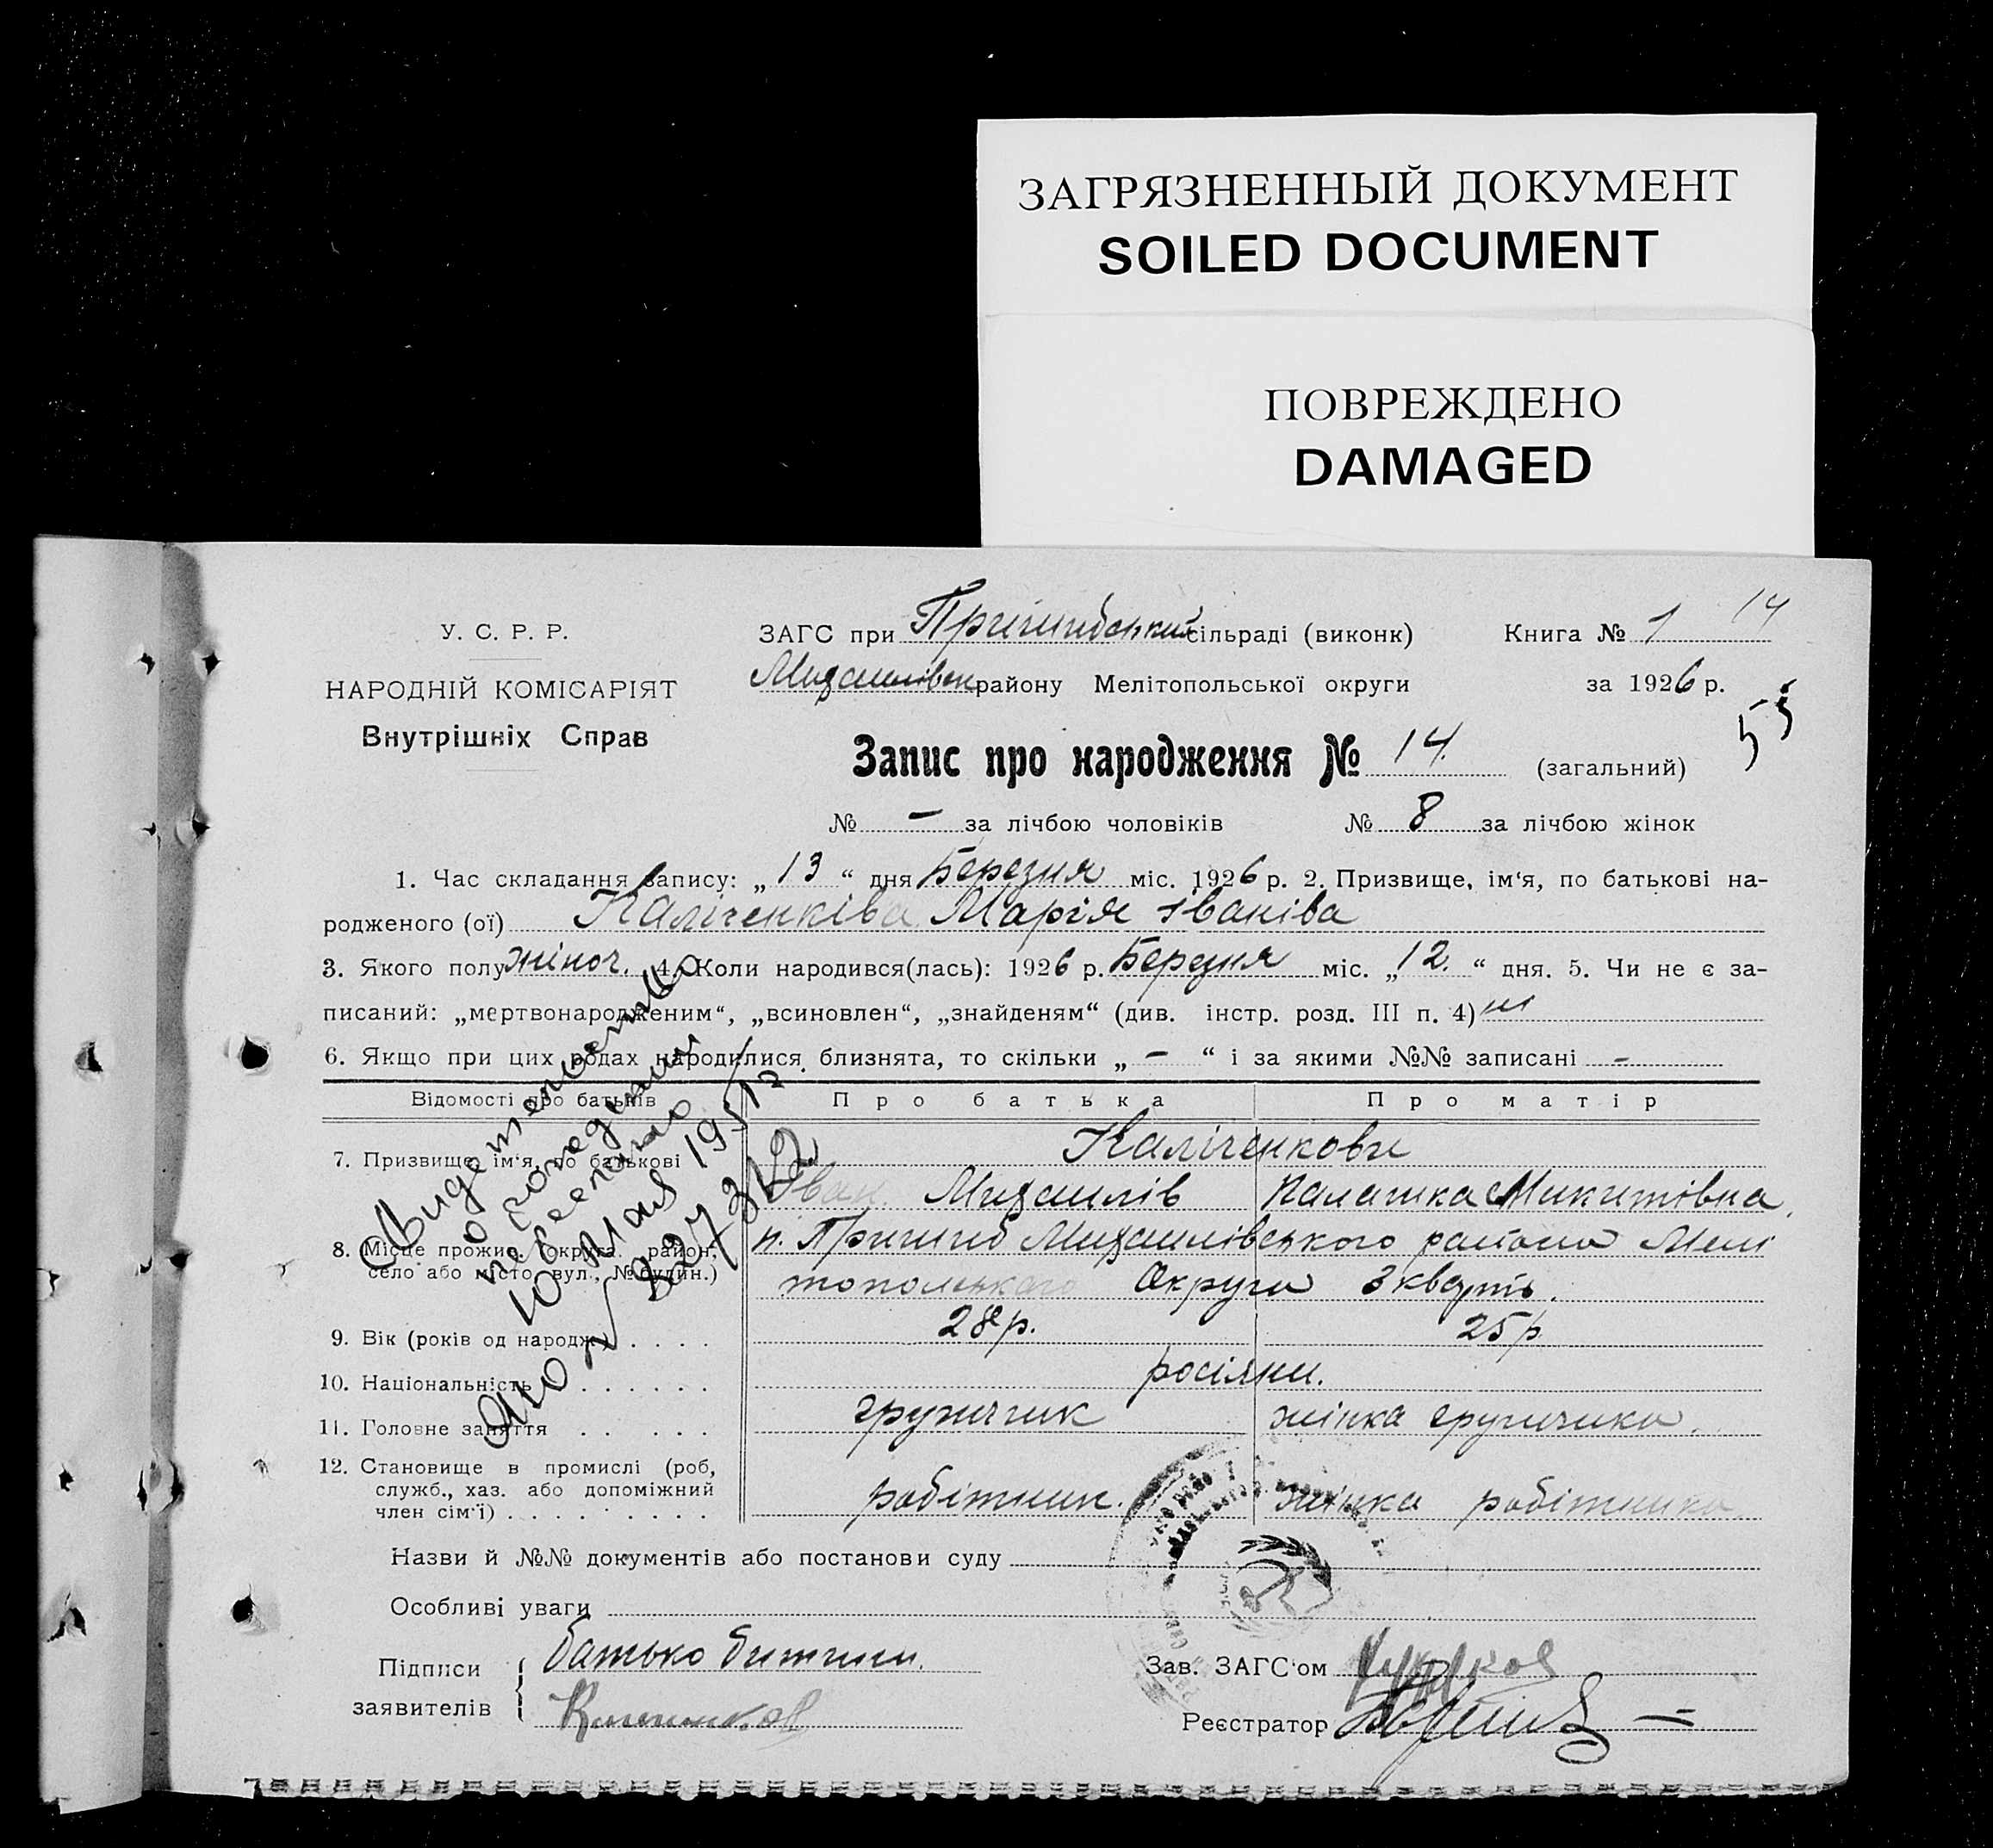 ЗАГРЯЗНЕННЫЙ ДОКУМЕНТ
SOILED DOCUMENT
ПОВРЕЖДЕНО
DAMAGED
14
У. С. Р. Р.
НАРОДНІЙ КОМІСАРІЯТ
Внутрішніх Справ
ЗАГС при Пришибський сільраді (виконк) Книга № 1
Михайлівськ району Мелітопольської округи за 1926 р.
55
Запис про народження № 14. (загальний)
№ – за лічбою чоловіків № 8 за лічбою жінок
1. Час складання запису: „ 13 “ дня Березня міс. 1926 р. 2. Призвище, ім‘я, по батькові на-
родженого (ої) Каліченківа Марія Іваніва
3. Якого полу жіноч. 4. Коли народився(лась): 1926 р. Березня міс. „ 12. “ дня. 5. Чи не є за-
писаний: „мертвонародженим“, „всиновлен“, „знайденям“ (див. інстр. розд. III п. 4) ні
6. Якщо при цих родах народилися близнята, то скільки „ – “ і за якими №№ записані –
Відомості про батьків Про батька Про матір
7. Призвище, ім‘я, по батькові Каліченкови
Іван Михайлів Палашка Микитівна
8. Місце прожив. (округа, район, п. Пришиб Михайлівського району Мелі
село або місто, вул., № будин.) топольського Округи 3 кварт.
9. Вік (років од народж.) . . . . 28 р. 25 р.
10. Національність . . . . . . росіяни.
11. Головне заняття . . . . . грузчик жінка грузчика.
12. Становище в промислі (роб, служб., хаз. або допоміжний член сім‘ї) . . . . . . . . . робітник. жінка робітника
Свидетельство
о рождении
10 Мая 195
ЯЮ № 327312
Назви й №№ документів або постанови суду
Особливі уваги
Підписи заявителів батько дитини.
Зав. ЗАГС‘ом
Реєстратор